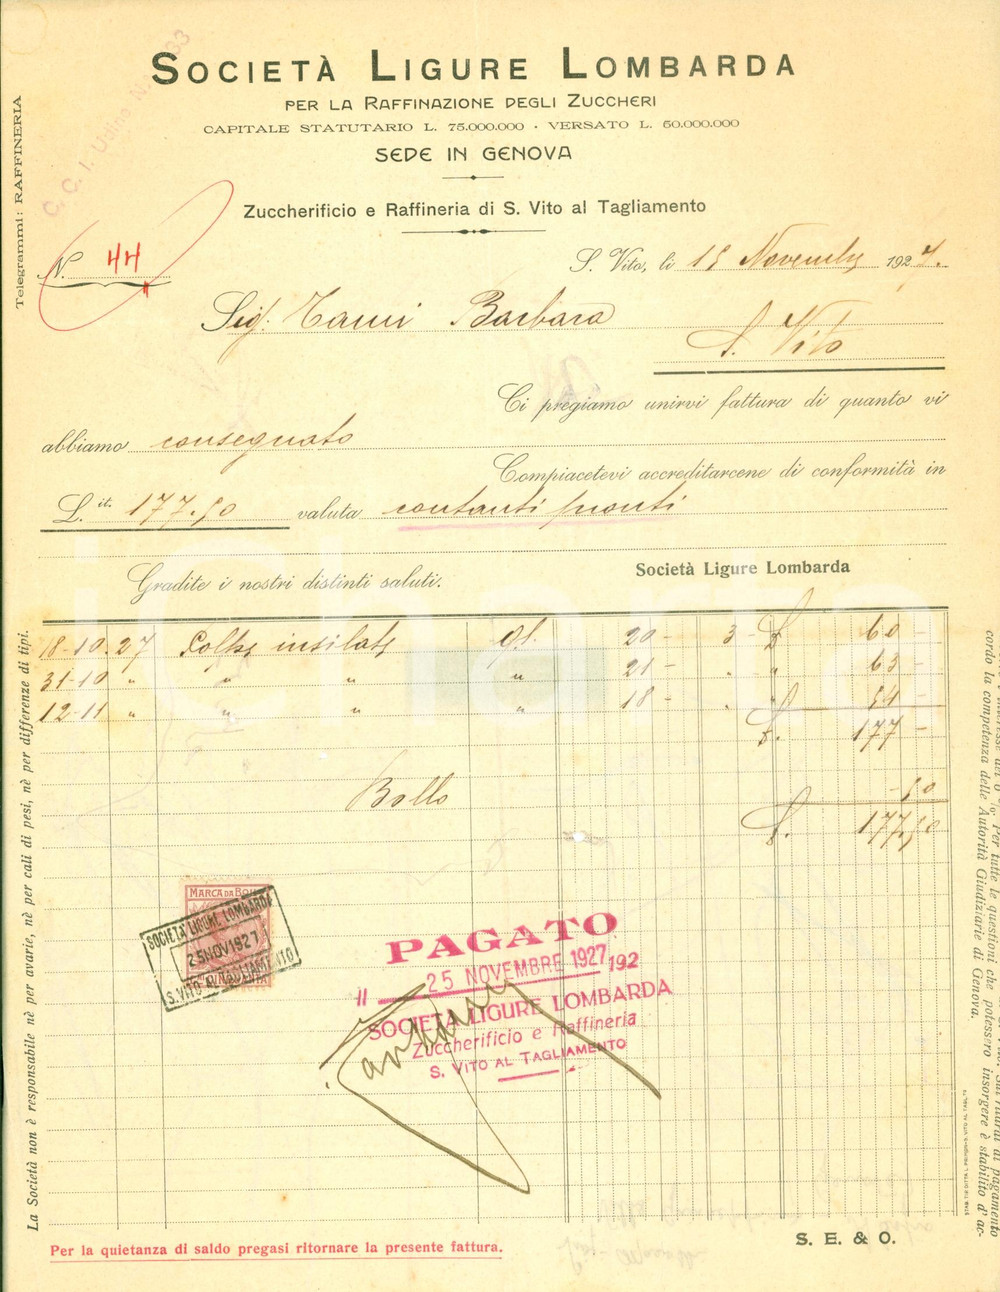 SOCIETÀ LIGURE LOMBARDA
PER LA RAFFINAZIONE DEGLI ZUCCHERI
CAPITALE STATUTARIO L. 75.000.000 · VERSATO L. 50.000.000
SEDE IN GENOVA
Zuccherificio e Raffineria di S. Vito al Tagliamento
Telegrammi: RAFFINERIA
C. C. I. Udine N.
N. 44
S. Vito, li 15 Novembre 1927.
Sig. Barbara
S. Vito
Ci pregiamo unirvi fattura di quanto vi
abbiamo consegnato
Compiacetevi accreditarcene di conformità in
L. it. 177.50 valuta contanti pronti
Gradite i nostri distinti saluti.
Società Ligure Lombarda
18-10. 27 Polpe insilate ql. 20 - 3 - £ 60 -
31-10 " " " " 21 - " " 63 -
12-11 " " " " 18 - " " 54 -
£. 177 -
Bollo - 50
£. 177.50
MARCA DA BOLLO
SOCIETÀ LIGURE LOMBARDA
25 NOV 1927
S. VITO AL TAGLIAMENTO
PAGATO
li 25 NOVEMBRE 1927 192
SOCIETÀ LIGURE LOMBARDA
Zuccherificio e Raffineria
S. VITO AL TAGLIAMENTO
La Società non è responsabile nè per avarie, nè per cali di pesi, nè per differenze di tipi.
del 6 %. Per tutte le questioni che potessero insorgere è stabilito d'ac-
cordo la competenza delle Autorità Giudiziarie di Genova.
Per la quietanza di saldo pregasi ritornare la presente fattura.
S. E. & O.